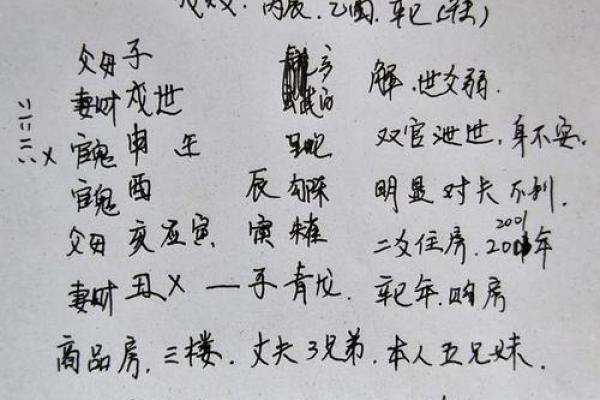 丙辰.乙酉.辛巳
父母子 解.世爻弱.
妻财戌世 双官泄世,身不安.
官鬼申 螣蛇
官鬼酉 辰 勾陈 明显对夫不利.
父母亥应寅 寅 朱雀 二爻住房.2001年
妻财丑X 一子青龙. 辛巳年.购房
商品房.三楼.丈夫3兄弟.本人五兄妹.